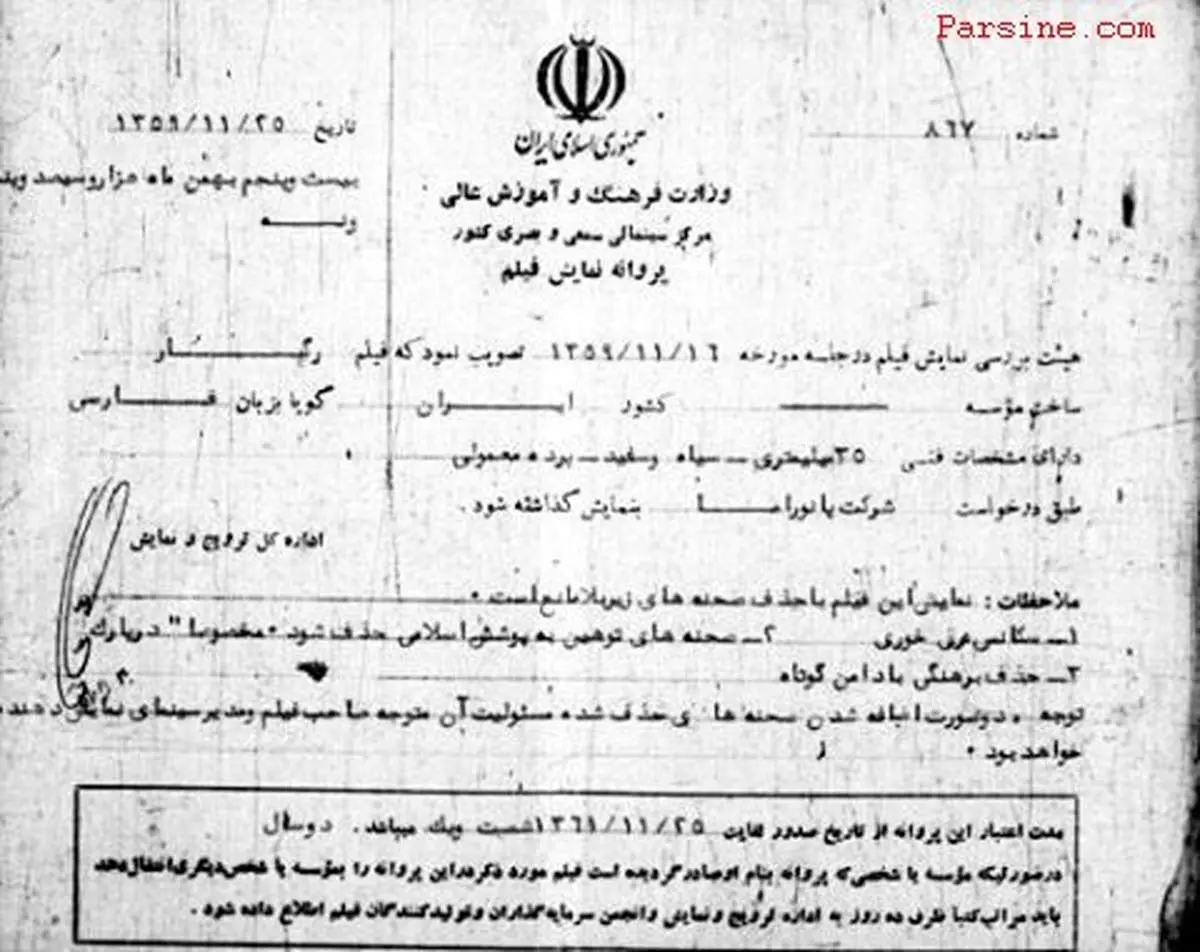 Parsine.com
شماره ۸۶۷
تاریخ ۱۳۵۹/۱۱/۲۵
بیست وپنجم بهمن ماه هزاروسیصد وپنجا
ونه
جمهوری اسلامی ایران
وزارت فرهنگ و آموزش عالی
مرکز سینمائی سمعی و بصری کشور
پروانه نمایش فیلم
هیئت بررسی نمایش فیلم در جلسه مورخه ۱۳۵۹/۱۱/۱۶ تصویب نمود که فیلم رگبار
ساخت مؤسسه ــــ کشور ایران گویا بزبان فارسی
دارای مشخصات فنی ۳۵ میلیمتری ــ سیاه وسفید ــ پرده معمولی
طبق درخواست شرکت پانوراما بنمایش گذاشته شود .
اداره کل ترویج و نمایش
ملاحظات : نمایش این فیلم با حذف صحنه های زیر بلامانع است ۰
۱ــ سکانس عرق خوری ۲ــ صحنه های توهین به پوشش اسلامی حذف شود ۰ مخصوصا " در پارک
۳ــ حذف برهنگی با دامن کوتاه
توجه ۰ در صورت اضافه شدن صحنه های حذف شده مسئولیت آن متوجه صاحب فیلم ومدیر سینمای نمایش دهنده
خواهد بود ۰
مدت اعتبار این پروانه از تاریخ صدور لغایت ۱۳۶۱/۱۱/۲۵ شصت ویك میباشد . دوسال
در صورتیکه مؤسسه یا شخصی که پروانه بنام او صادر گردیده است فیلم مورد ذکر در این پروانه را بمؤسسه یا شخص دیگری انتقال دهد
باید مراتب کتبا ظرف ده روز به اداره ترویج و نمایش و انجمن سرمایه گذاران و تولید کنندگان فیلم اطلاع داده شود .